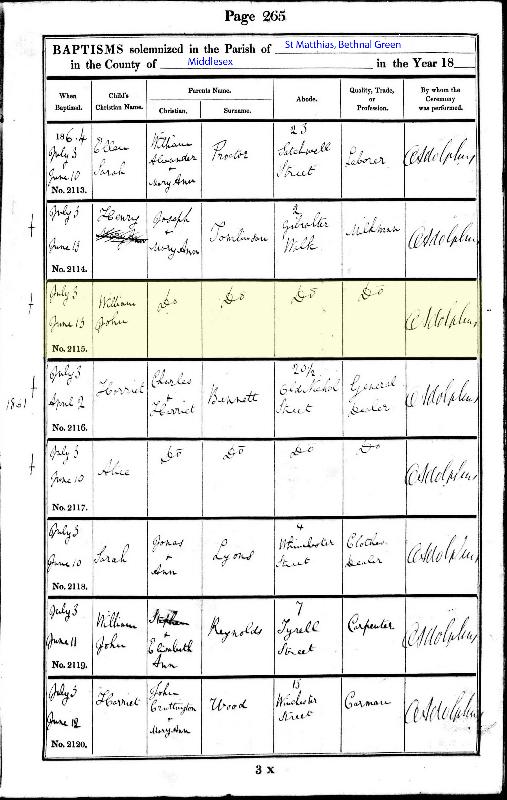 Page 265
BAPTISMS solemnized in the Parish of St Matthias, Bethnal Green
in the County of Middlesex in the Year 18
When Baptized. Child's Christian Name. Parents Name. Abode. Quality, Trade, or Profession. By whom the Ceremony was performed.
Christian. Surname.
1864
July 3
June 10
No. 2113.
Ellen
Sarah
William
Alexander
+
Mary Ann
Proctor
23
Street
Laborer
July 3
June 13
No. 2114.
Henry
Joseph
+
Mary Ann
Tomlinson
2
Gibralter
Walk
Milkman
July 3
June 13
No. 2115.
William
John
Do
Do
Do
Do
1861
July 3
April 2
No. 2116.
Harriet
Charles
+
Harriet
Bennett
20½
Old Nichol
Street
General
Dealer
July 3
June 10
No. 2117.
Alice
Do
Do
Do
Do
July 3
June 10
No. 2118.
Sarah
Jonas
+
Ann
Lyons
4
Street
Clothes
Dealer
July 3
June 11
No. 2119.
William
John
Stephen
+
Elizabeth
Ann
Reynolds
7
Tyrell
Street
Carpenter
July 3
June 12
No. 2120.
Harriet
John
+
Mary Ann
Wood
13
Winchester
Street
Carman
3 x